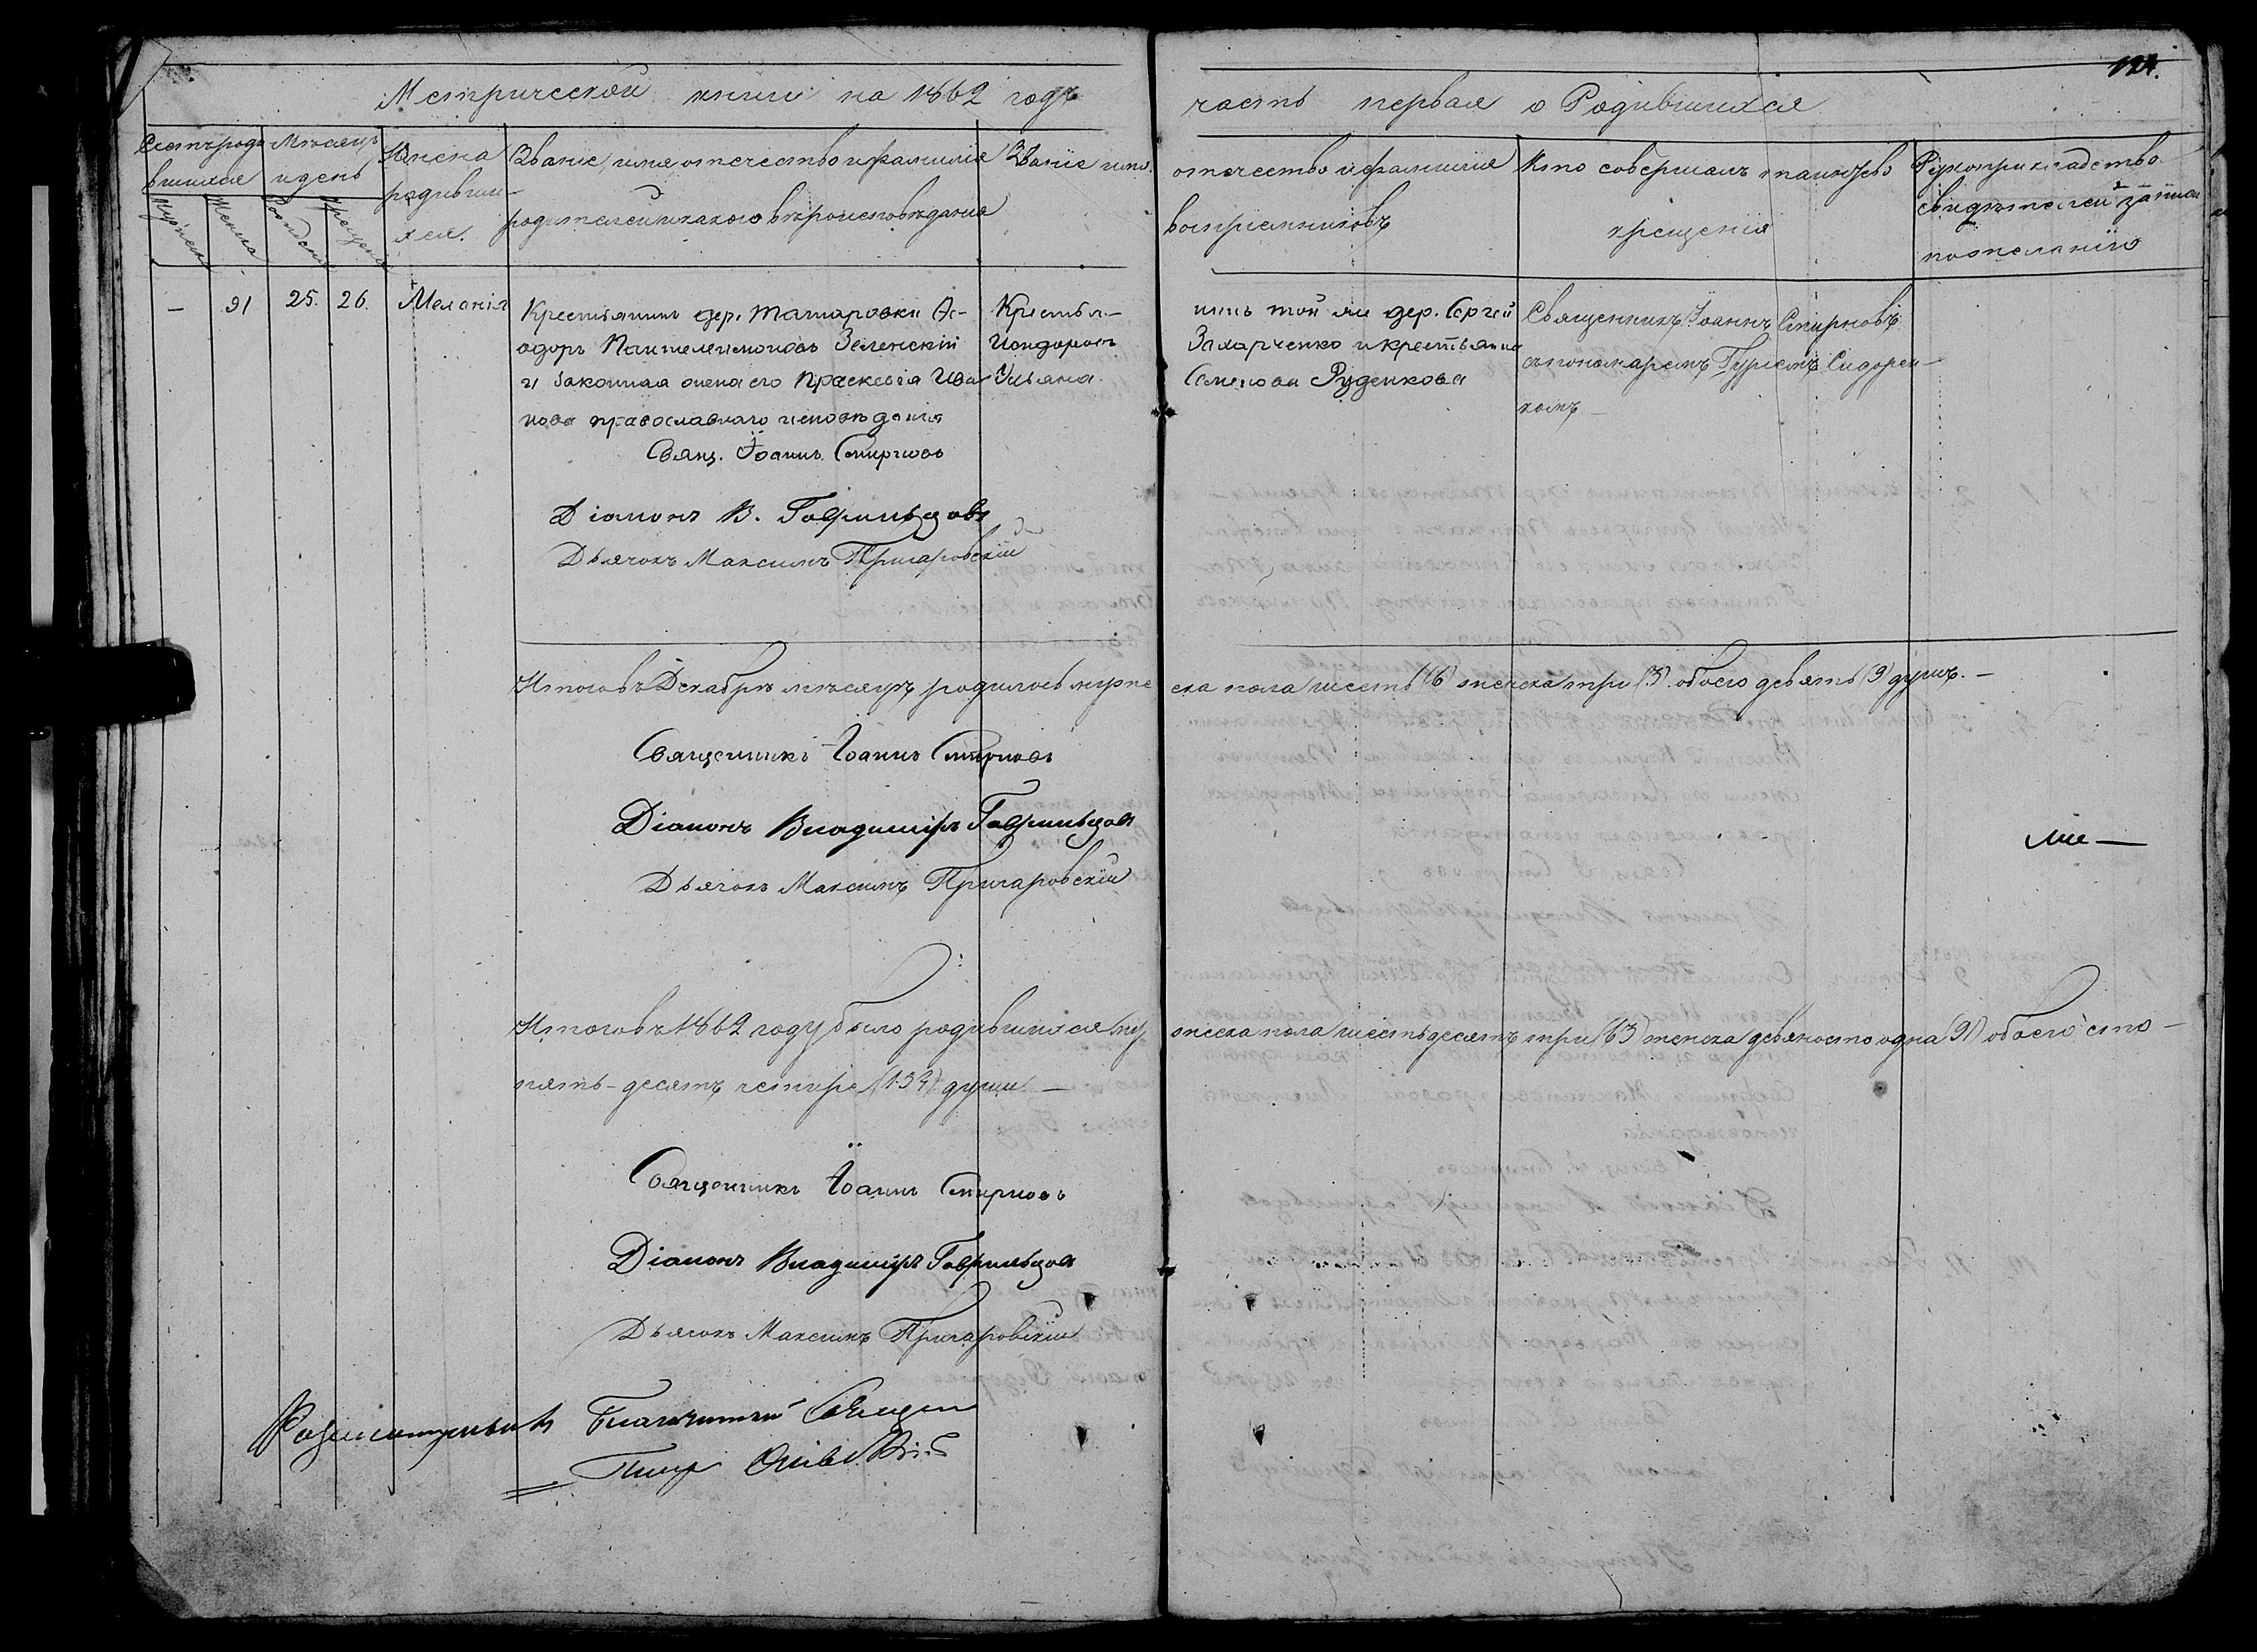 124.
Метрической книги на 1862 годъ
часть первая о Родившихся
Счетъ роди
вшихся
Мужеска
Женска
Мѣсяцъ
и день
Рожденія
Крещенія
Имена
родивши-
хся.
Званіе, имя отечество и фамилія
родителей и какого вѣроисповѣданія
Званіе имя.
отечество и фамилія
воспріемниковъ
Кто совершалъ таинство
крещенія
Рукоприкладство
свидѣтелей записи
по желанію
— 91 25. 26. Меланія
Крестьянинъ дер. Татаровки Ѳе-
одоръ Пантелеимоновъ Зеленскій
и законная жена его Праскевія Ива
нова православнаго исповѣданія
Свящ. Іоаннъ Смирновъ
Діаконъ В. Гаврильцовъ
Дьячокъ Максимъ Пригаровскій
Крестья-
Исидоровъ
Ульяна.
нинъ той же дер. Сергей
Захарченко и крестьянка
Семенова Руденкова
Священникъ Іоаннъ Смирновъ
съ пономаремъ Гуріемъ Сидорен-
комъ —
Итого въ Декабрѣ мѣсяцѣ родилось мужес
ска пола шесть (6) женска три (3) обоего девять (9) душъ. —
Священникъ Іоаннъ Смирновъ
Діаконъ Владиміръ Гаврильцовъ
Дьячокъ Максимъ Пригаровскій
Итого въ 1862 году было родившихся му
жеска пола шестьдесятъ три (63) женска девяносто одна (91) обоего сто —
пять-десятъ четыре (154) души —
Священникъ Іоаннъ Смирновъ
Діаконъ Владиміръ Гаврильцовъ
Дьячокъ Максимъ Пригаровскій
Благочинный Священ